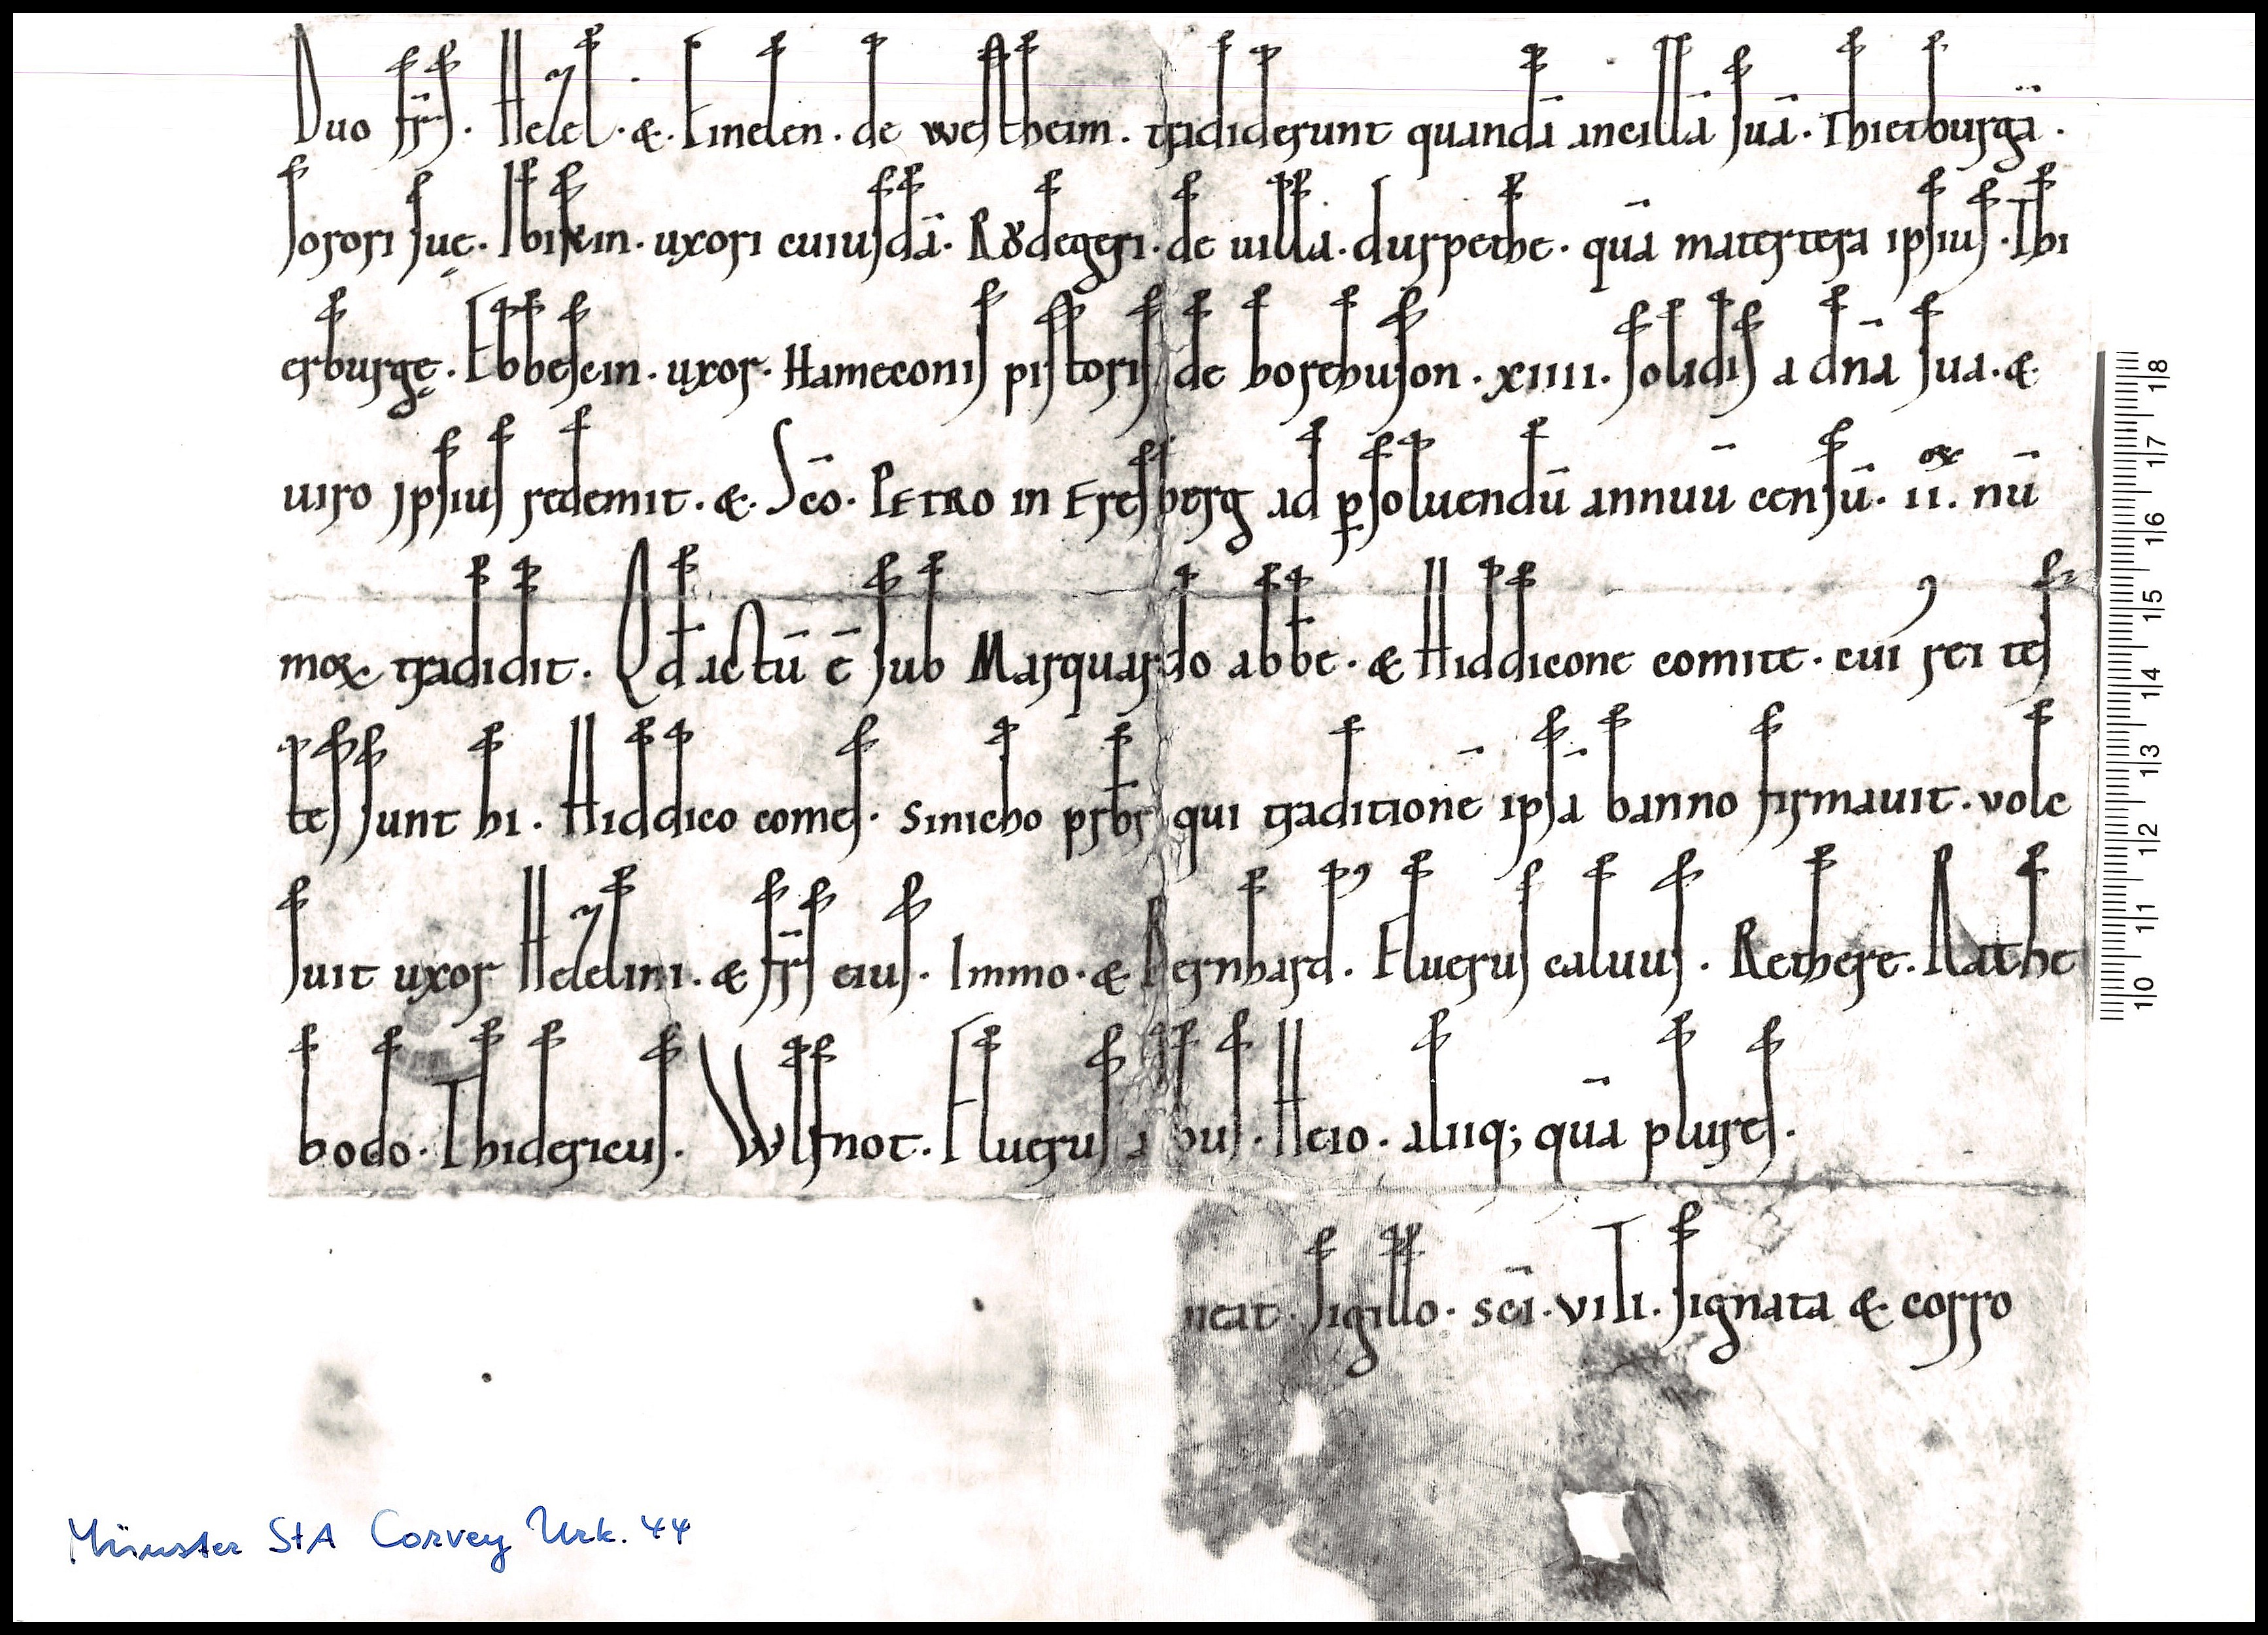 Duo fr̄s. Hezel. &. Einelen. de westheim. tradiderunt quandā ancillā suā. Thietburgā.
sorori suę. Ibikin. uxori cuiusdā. Rŏdegeri. de uilla. durpethe. quā matertera ipsius. Thi
erburgę. Ebbekin. uxor. Hameconis pistoris de borchuson. xiiii. solidis a dn̄a sua. &
uiro ipsius redemit. &. Sc̄o. PETRO in Eresberg ad ꝑsoluendū annuū censū. ii. nū
mox tradidit. Qd̄ actū ē sub Marquardo abb̄e. & Hiddicone comite. cui᾿ rei tes
tes sunt hi. Hiddico comes. Sinicho prb̄r qui traditionē ipsā banno firmauit. vole
Suit uxor Hezelini. & fr̄s eius. Immo. & Bernhard. Eluerus caluus. Rethere. Rathe
bodo. Thidericus. Wlfnot. Eluerus a bus. Heio. aliiq; quā plures.
neat. sigillo. sc̄i. viti. signata & corro
1|8
1|7
1|6
1|5
1|4
1|3
1|2
1|1
1|0
Münster StA Corvey Urk. 44